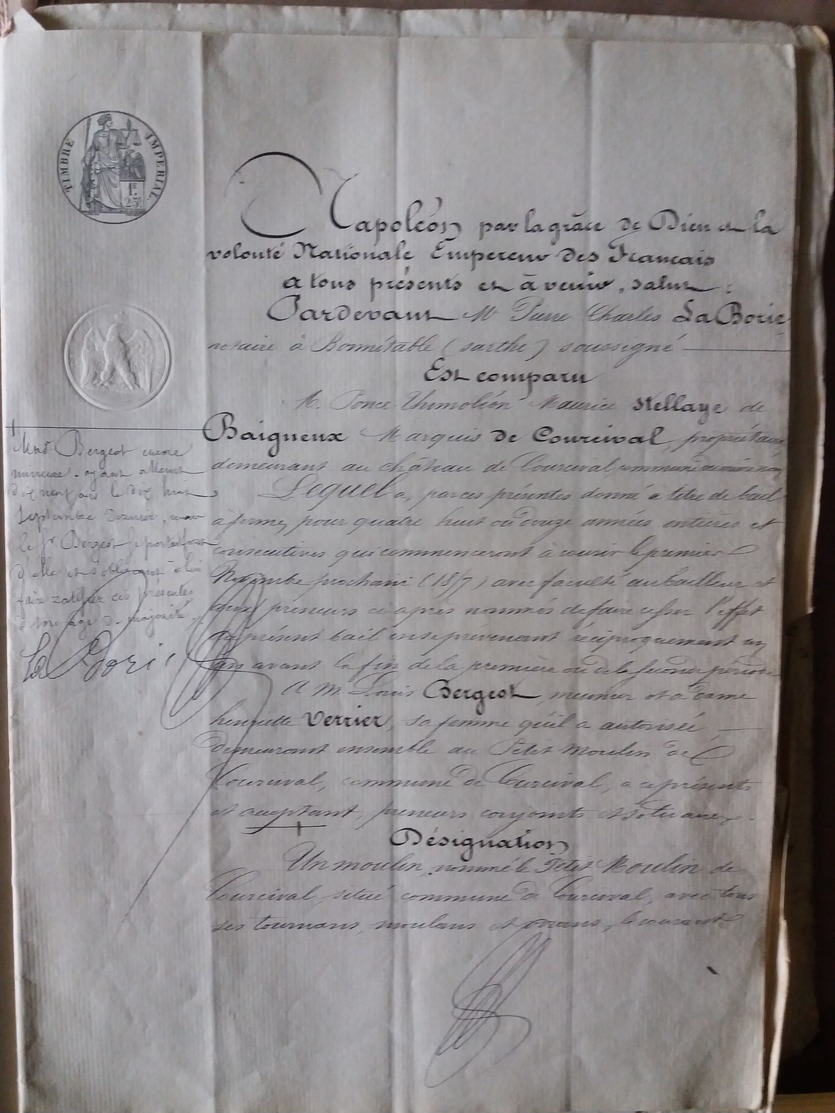 TIMBRE IMPERIAL
1F.
25C
Napoléon par la grâce de Dieu et la
volonté Nationale Empereur des Français
à tous présents et à venir, salut :
Pardevant Me Pierre Charles La Borie
notaire à Bonnétable (sarthe) soussigné
Est comparu
M. Ponce Thimoléon Maurice Stellaye de
Baigneux Marquis de Courcival, propriétaire
demeurant au château de Courcival, commune du même nom
Lequel a, par ces présentes donné à titre de bail
à ferme, pour quatre huit ou douze années entières et
consécutives qui commenceront à courir le premier
Novembre prochain (1857) avec faculté au bailleur et
aux preneurs ci après nommés de faire cesser l'effet
du présent bail en se prévenant réciproquement un
an avant la fin de la première ou de la seconde période
A M. Louis Bergeot, meunier et à dame
henriette Verrier, sa femme qu'il a autorisée
demeurant ensemble au Petit Moulin de
Courcival, commune de Courcival, à ce présents
et acceptant, preneurs conjoints et solidaires.
Désignation
Un moulin nommé le Petit Moulin de
Courcival, situé commune de Courcival, avec tous
ses tournans, moulans et virans, le courant
Made Bergeot encore
mineure, ayant atteint
dix neuf ans le dix huit
Septembre dernier, mais
le Sr Bergeot se portant fort
d'elle et s'obligeant à lui
faire ratifier ces présentes
à son âge de majorité.
La Borie